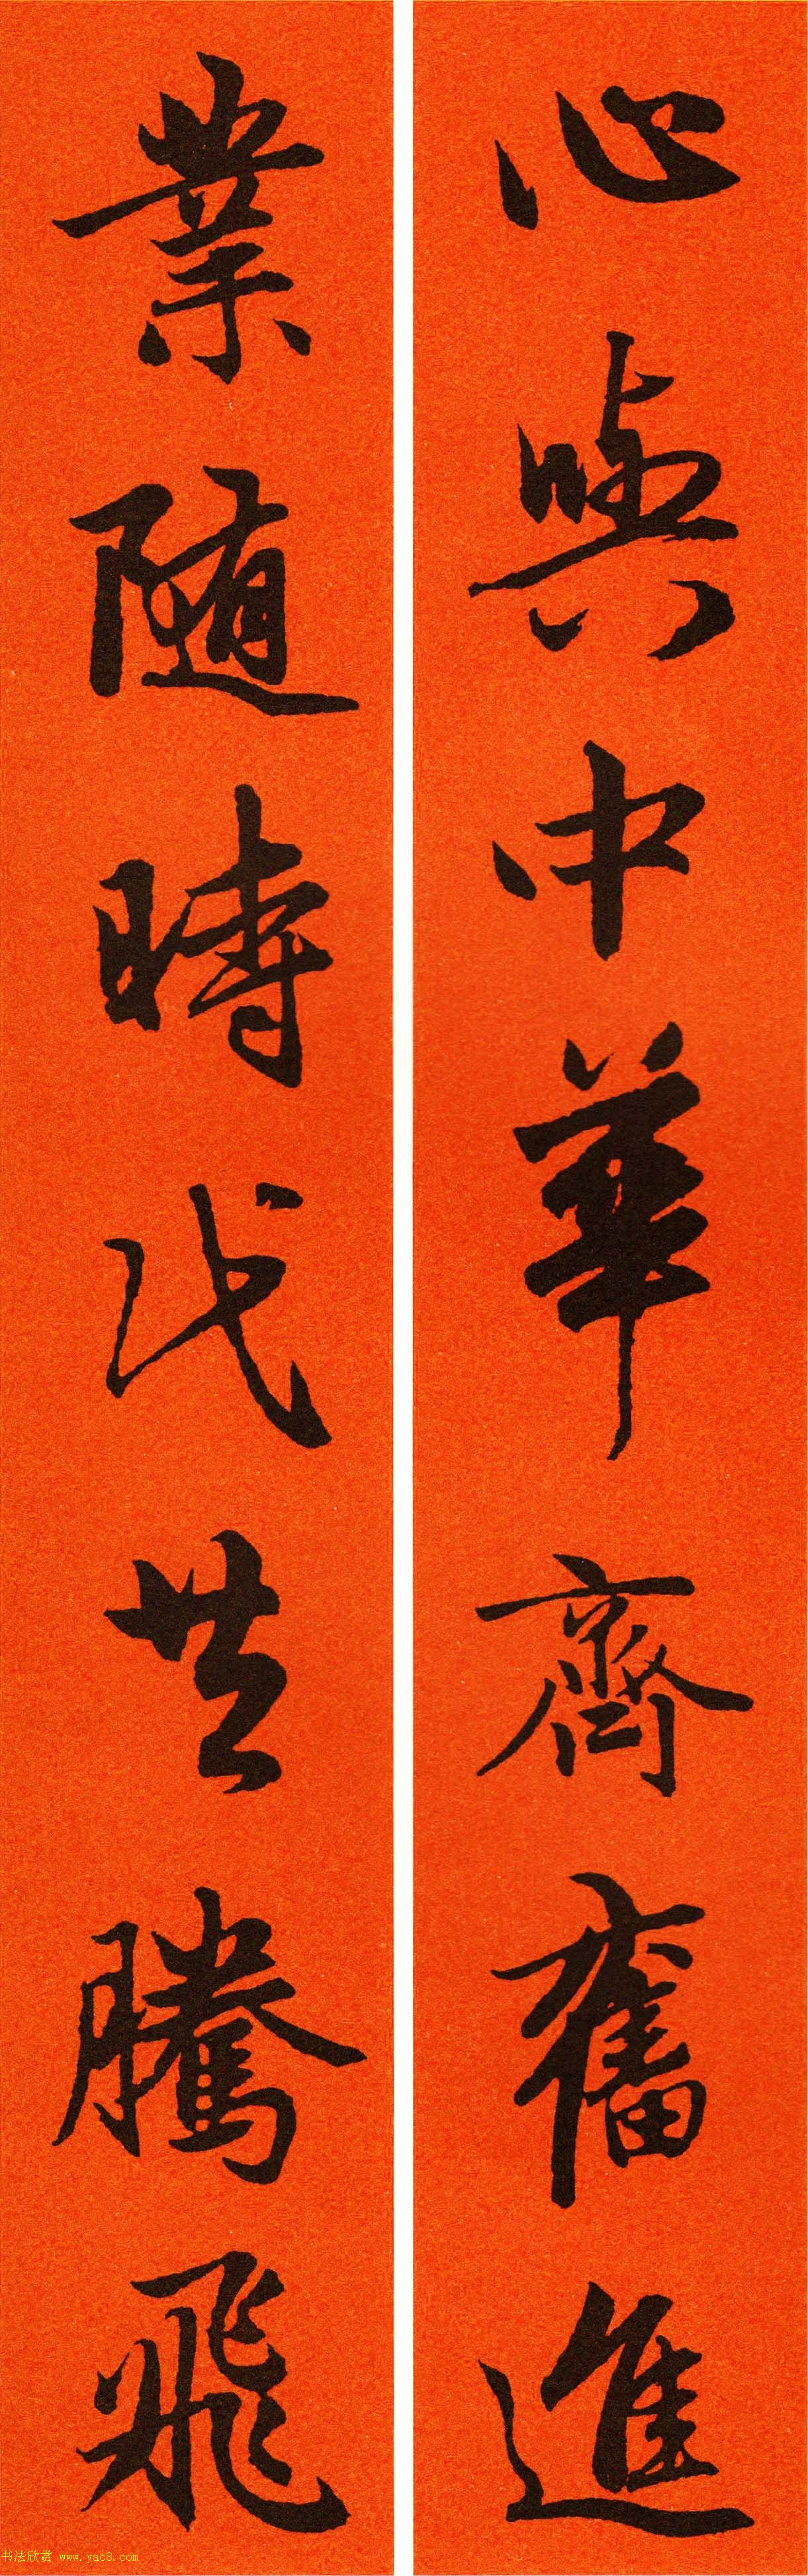 心與中華齊奮進
業隨時代共騰飛
书法欣赏 www.yac8.com